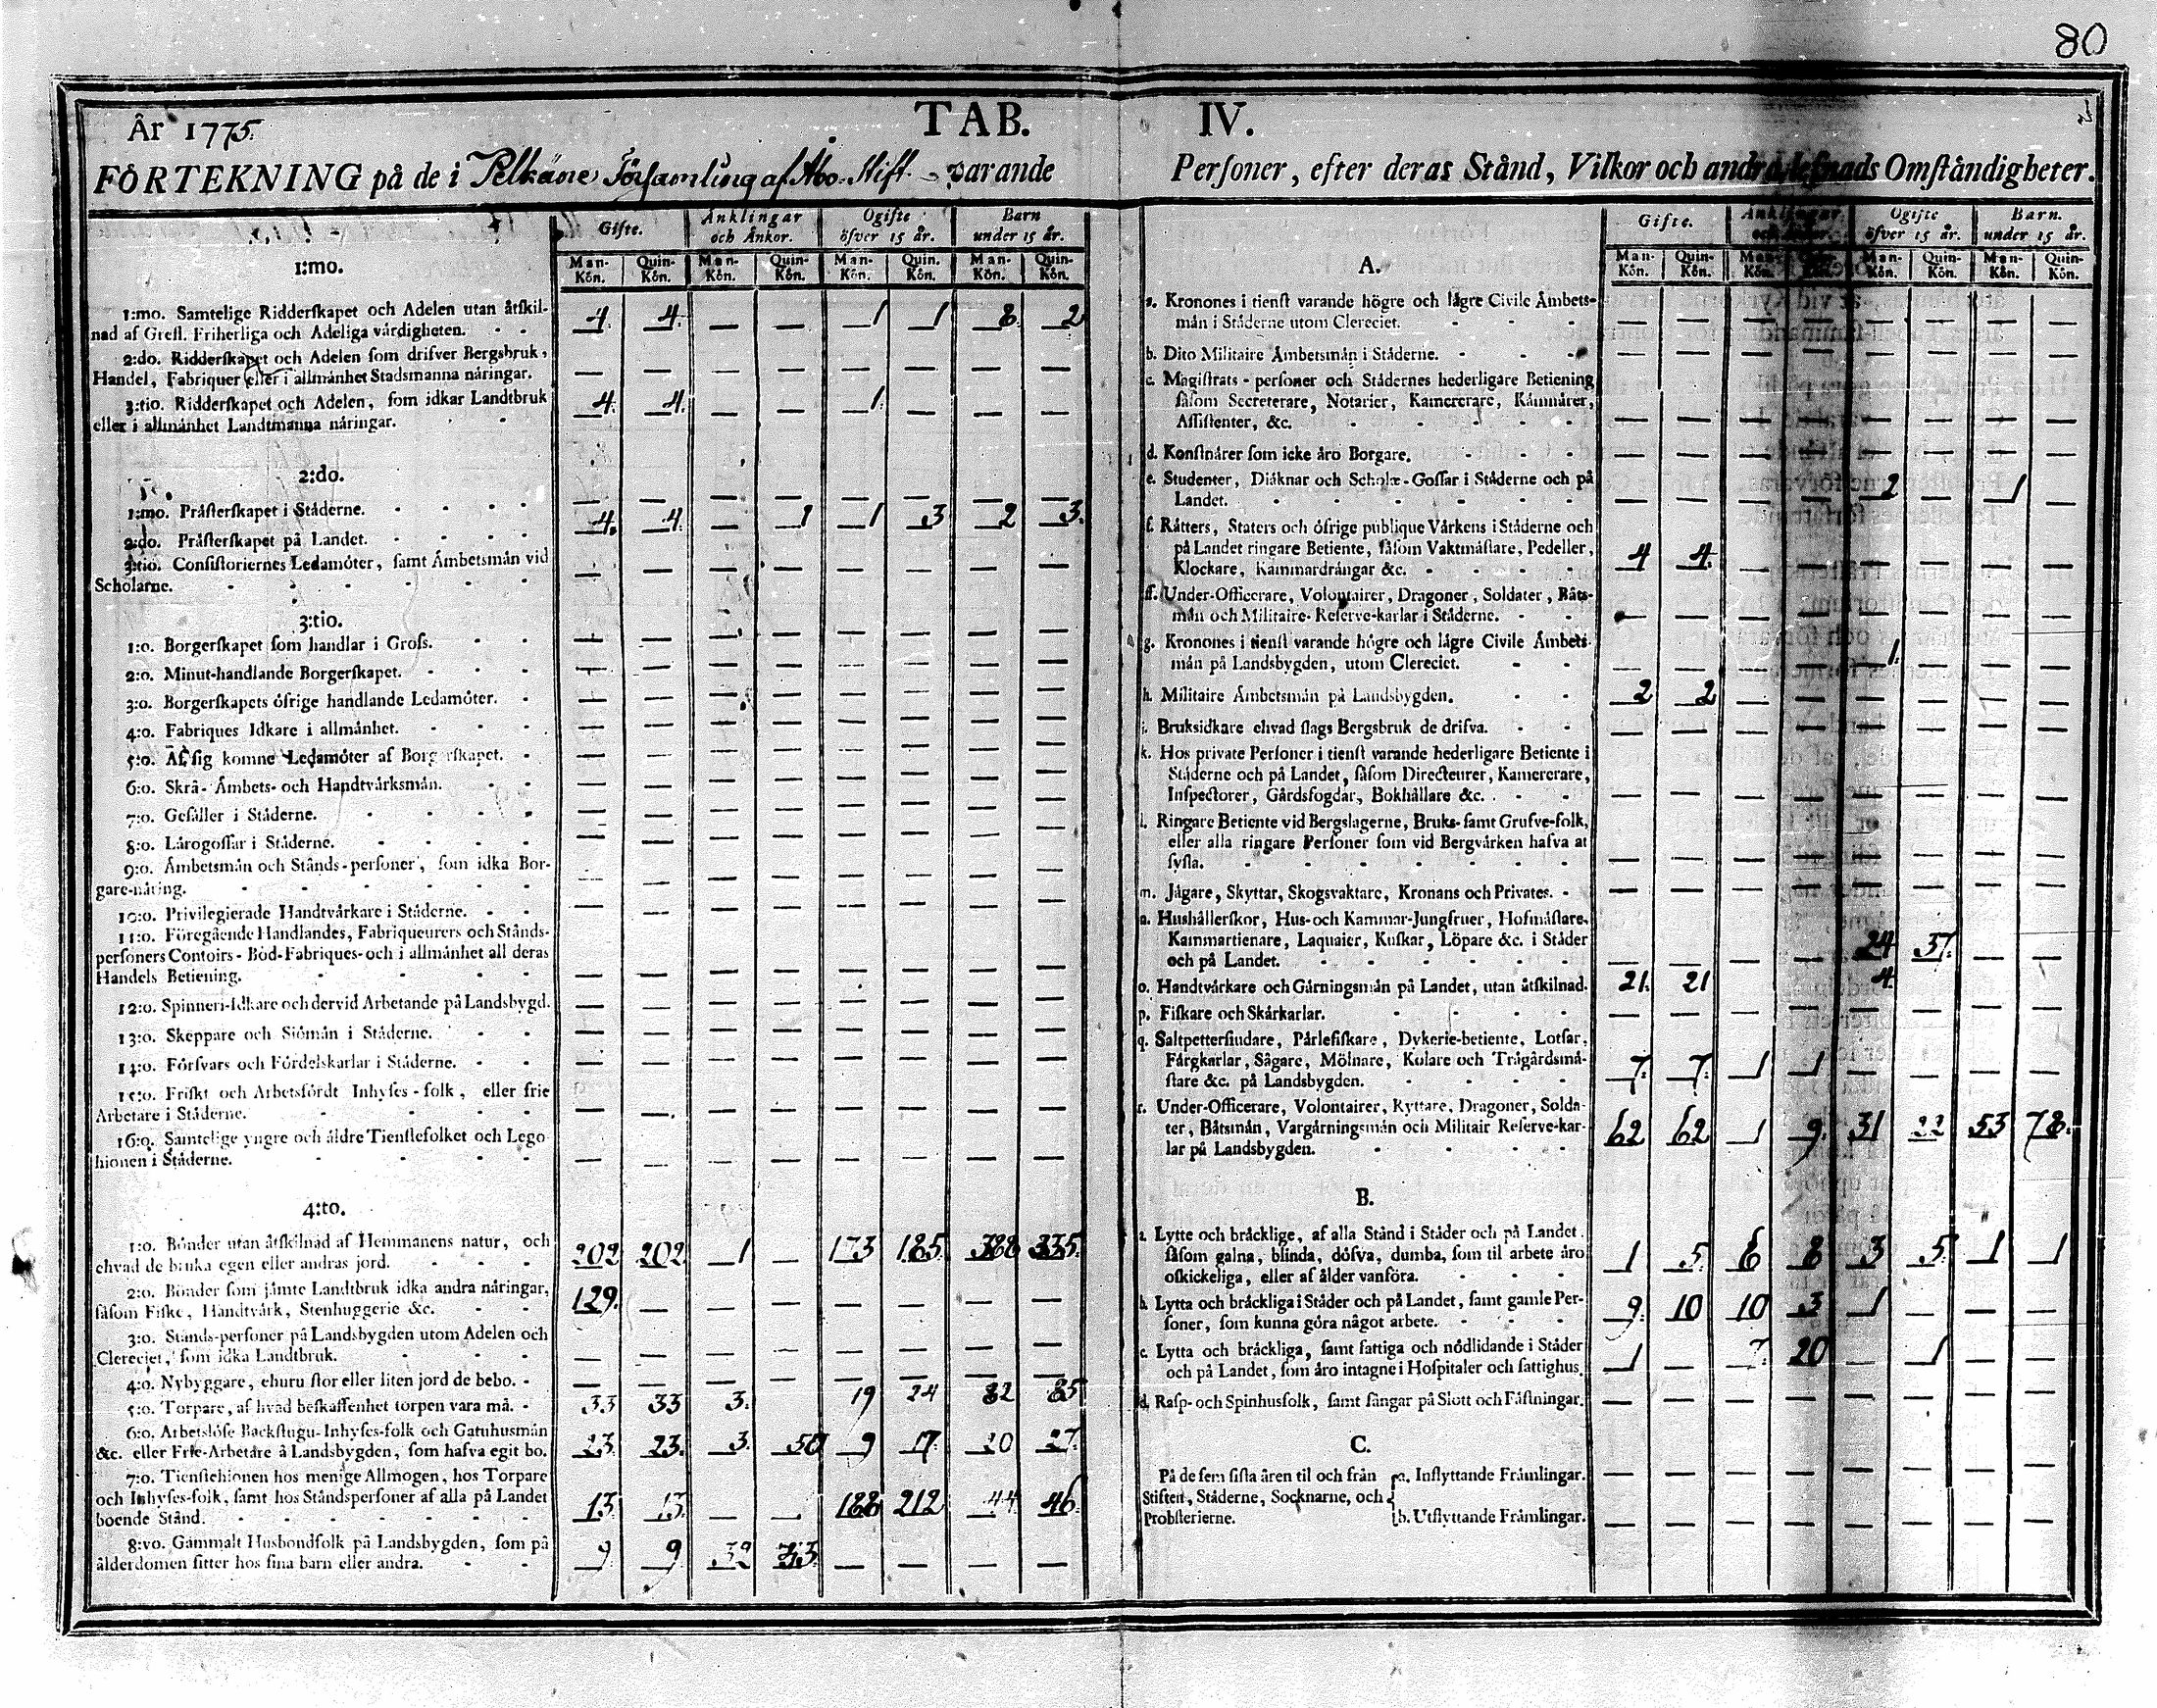 80
År 1775.
TAB. IV.
FÖRTEKNING på de i Pelkäne Församling af Åbo Stift varande Personer, efter deras Stånd, Vilkor och andra lefnads Omständigheter.
Gifte. Änklingar och Änkor. Ogifte öfver 15 år. Barn under 15 år.
Man-Kön. Quin-Kön. Man-Kön. Quin-Kön. Man-Kön. Quin-Kön. Man-Kön. Quin-Kön.
1:mo.
1:mo. Samtelige Ridderskapet och Adelen utan åtskil-
nad af Grefl. Friherliga och Adeliga värdigheten. 4. 4. — — 1 1 8 2
2:do. Ridderskapet och Adelen som drifver Bergsbruk,
Handel, Fabriquer eller i allmänhet Stadsmanna näringar. — — — — — — — —
3:tio. Ridderskapet och Adelen, som idkar Landtbruk
eller i allmänhet Landtmanna näringar. 4. 4. — — 1. — — —
2:do.
1:mo. Prästerskapet i Städerne. — — — — — — — —
2:do. Prästerskapet på Landet. 4. 4. — 1 1 3 2 3.
3:tio. Consistoriernes Ledamöter, samt Ämbetsmän vid
Scholarne. — — — — — — — —
3:tio.
1:o. Borgerskapet som handlar i Gross. — — — — — — — —
2:o. Minut-handlande Borgerskapet. — — — — — — — —
3:o. Borgerskapets öfrige handlande Ledamöter. — — — — — — — —
4:o. Fabriques Idkare i allmänhet. — — — — — — — —
5:o. Af sig komne Ledamöter af Borgerskapet. — — — — — — — —
6:o. Skrå- Ämbets- och Handtvärksmän. — — — — — — — —
7:o. Gesäller i Städerne. — — — — — — — —
8:o. Lärogossar i Städerne. — — — — — — — —
9:o. Ämbetsmän och Stånds-personer, som idka Bor-
gare-näring. — — — — — — — —
10:o. Privilegierade Handtvärkare i Städerne. — — — — — — — —
11:o. Föregående Handlandes, Fabriqueurers och Stånds-
personers Contoirs- Bod-Fabriques-och i allmänhet all deras
Handels Betiening. — — — — — — — —
12:o. Spinneri-Idkare och dervid Arbetande på Landsbygd. — — — — — — — —
13:o. Skeppare och Siömän i Städerne. — — — — — — — —
14:o. Försvars och Fördelskarlar i Städerne. — — — — — — — —
15:o. Friskt och Arbetsfördt Inhyses-folk, eller frie
Arbetare i Städerne. — — — — — — — —
16:o. Samtelige yngre och äldre Tienstefolket och Lego
hionen i Städerne. — — — — — — — —
4:to.
1:o. Bönder utan åtskilnad af Hemmanens natur, och
ehvad de bruka egen eller andras jord. 202 202 1 — 173 185. 388 335.
2:o. Bönder som jämte Landtbruk idka andra näringar,
såsom Fiske, Handtvärk, Stenhuggerie &c. 129. — — — — — — —
3:o. Stånds-personer på Landsbygden utom Adelen och
Clereciet, som idka Landtbruk. — — — — — — — —
4:o. Nybyggare, ehuru stor eller liten jord de bebo. — — — — — — — —
5:o. Torpare, af hvad beskaffenhet torpen vara må. 33 33 3. 19 24 82 85
6:o. Arbetslöse Backstugu-Inhyses-folk och Gatuhusmän
&c. eller Frie-Arbetare å Landsbygden, som hafva egit bo. 23. 23. 3. 50 9 17. 20 27.
7:o. Tienstehionen hos menige Allmogen, hos Torpare
och Inhyses-folk, samt hos Ståndspersoner af alla på Landet
boende Stånd. 13. 13. — — 188 212 44 46.
8:vo. Gammalt Husbondfolk på Landsbygden, som på
ålderdomen sitter hos sina barn eller andra. 9 9 32 — — — —
Gifte. Änklingar och Änkor. Ogifte öfver 15 år. Barn. under 15 år.
Man-Kön. Quin-Kön. Man-Kön. Quin-Kön. Man-Kön. Quin-Kön. Man-Kön. Quin-Kön.
A.
a. Kronones i tienst varande högre och lägre Civile Ämbets-
män i Städerne utom Clereciet. — — — — — — — —
b. Dito Militaire Ämbetsmän i Städerne. — — — — — — — —
c. Magistrats-personer och Städernes hederligare Betiening
såsom Secreterare, Notarier, Kamererare, Kämnärer,
Assistenter, &c. — — — — — — — —
d. Konstnärer som icke äro Borgare. — — — — — — — —
e. Studenter, Diäknar och Scholæ-Gossar i Städerne och på
Landet. — — — — 2 — 1 —
f. Rätters, Staters och öfrige publique Värkens i Städerne och
på Landet ringare Betiente, såsom Vaktmästare, Pedeller,
Klockare, Kammardrängar &c. 4 4. — — — — — —
ff. Under-Officerare, Volontairer, Dragoner, Soldater, Båts-
män och Militaire-Reserve-karlar i Städerne. — — — — — — — —
g. Kronones i tienst varande högre och lägre Civile Ämbets-
män på Landsbygden, utom Clereciet. — — — — 1. — — —
h. Militaire Ämbetsmän på Landsbygden. 2 2 — — — — — —
i. Bruksidkare ehvad slags Bergsbruk de drifva. — — — — — — — —
k. Hos private Personer i tienst varande hederligare Betiente i
Städerne och på Landet, såsom Directeurer, Kamererare,
Inspectorer, Gårdsfogdar, Bokhållare &c. — — — — — — — —
l. Ringare Betiente vid Bergslagerne, Bruks- samt Grufve-folk,
eller alla ringare Personer som vid Bergvärken hafva at
syssla. — — — — — — — —
m. Jägare, Skyttar, Skogsvaktare, Kronans och Privates. — — — — — — — —
n. Hushållerskor, Hus-och Kammar-Jungfruer, Hofmästare,
Kammartienare, Laquaier, Kuskar, Löpare &c. i Städer
och på Landet. — — — — 24 37. — —
o. Handtvärkare och Gärningsmän på Landet, utan åtskilnad. 21. 21 4.
p. Fiskare och Skärkarlar. — — — — — — — —
q. Saltpettersiudare, Pärlefiskare, Dykerie-betiente, Lotsar,
Färgkarlar, Sågare, Mölnare, Kolare och Trägårdsmä-
stare &c. på Landsbygden. 7. 7. 1 1 — — — —
r. Under-Officerare, Volontairer, Ryttare, Dragoner, Solda-
ter, Båtsmän, Vargärningsmän och Militair Reserve-kar-
lar på Landsbygden. 62 62 1 9. 31 22 53 78.
B.
a. Lytte och bräcklige, af alla Stånd i Städer och på Landet.
såsom galna, blinda, döfva, dumba, som til arbete äro
oskickeliga, eller af ålder vanföra. 1 5. 6 8 3 5. 1 1
b. Lytta och bräckliga i Städer och på Landet, samt gamle Per-
soner, som kunna göra något arbete. 9. 10 10 3 1 — — —
c. Lytta och bräckliga, samt fattiga och nödlidande i Städer
och på Landet, som äro intagne i Hospitaler och fattighus. 1 — 7. 20 — 1 — —
d. Rasp- och Spinhusfolk, samt fångar på Slott och Fästningar. — — — — — — — —
C.
På de fem sista åren til och från
Stiften, Städerne, Socknarne, och
Probsterierne.
a. Inflyttande Främlingar. — — — — — — — —
b. Utflyttande Främlingar. — — — — — — — —